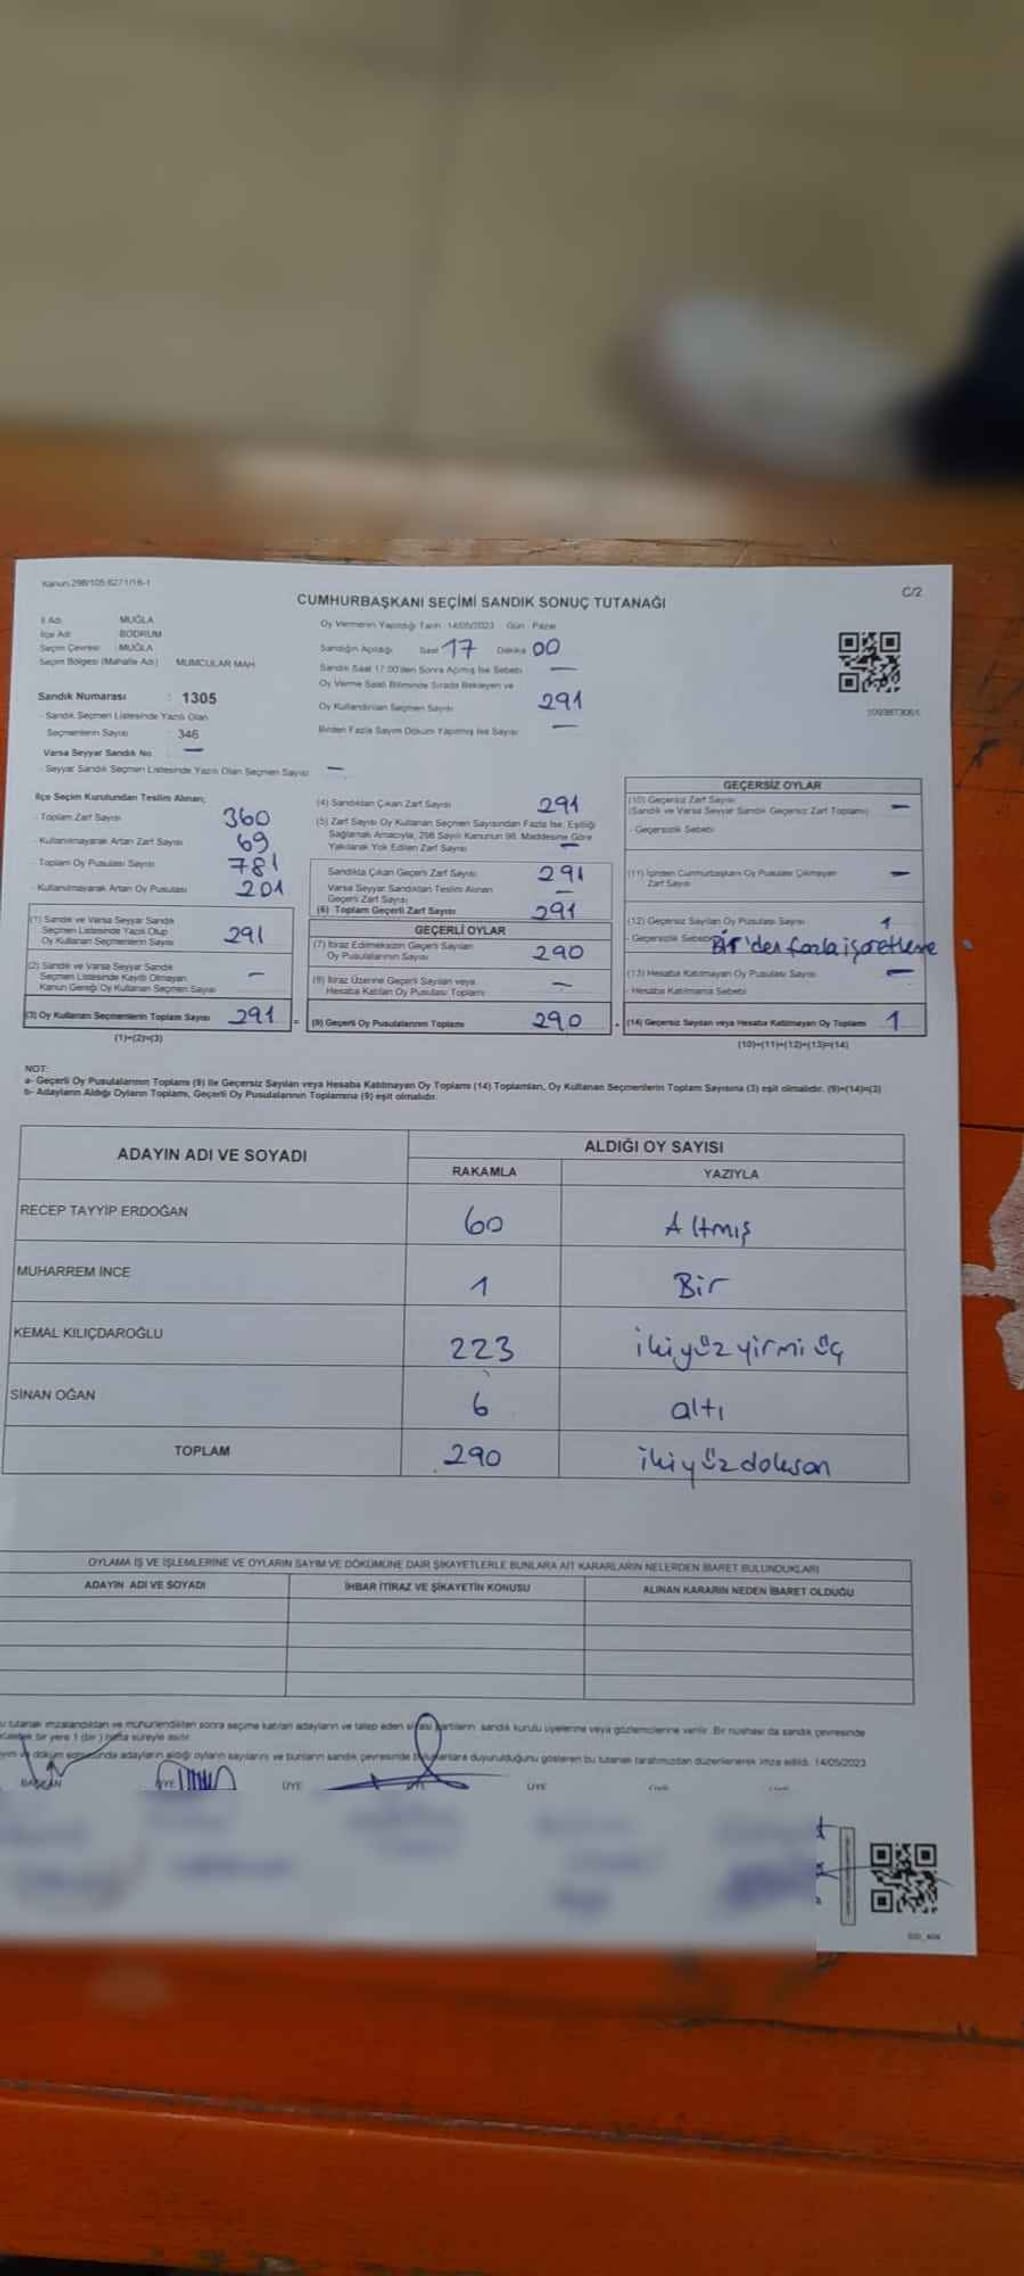 Kanun 298/105 6271/16-1
C/2
CUMHURBAŞKANI SEÇİMİ SANDIK SONUÇ TUTANAĞI
İl Adı MUĞLA
İlçe Adı BODRUM
Seçim Çevresi MUĞLA
Seçim Bölgesi (Mahalle Adı) MUMCULAR MAH
Sandık Numarası : 1305
- Sandık Seçmen Listesinde Yazılı Olan
Seçmenlerin Sayısı 346
Varsa Seyyar Sandık No —
- Seyyar Sandık Seçmen Listesinde Yazılı Olan Seçmen Sayısı —
Oy Vermenin Yapıldığı Tarih 14/05/2023 Gün Pazar
Sandığın Açıldığı Saat 17 Dakika 00
Sandık Saat 17:00'den Sonra Açılmış İse Sebebi —
Oy Verme Saati Bitiminde Sırada Bekleyen ve
Oy Kullandırılan Seçmen Sayısı 291
Birden Fazla Sayım Döküm Yapılmış İse Sayısı —
İlçe Seçim Kurulundan Teslim Alınan;
- Toplam Zarf Sayısı 360
- Kullanılmayarak Artan Zarf Sayısı 69
- Toplam Oy Pusulası Sayısı 781
- Kullanılmayarak Artan Oy Pusulası 201
(1) Sandık ve Varsa Seyyar Sandık
Seçmen Listesinde Yazılı Olup
Oy Kullanan Seçmenlerin Sayısı 291
(2) Sandık ve Varsa Seyyar Sandık
Seçmen Listesinde Kayıtlı Olmayan
Kanun Gereği Oy Kullanan Seçmen Sayısı —
(3) Oy Kullanan Seçmenlerin Toplam Sayısı 291
(1)+(2)=(3)
(4) Sandıktan Çıkan Zarf Sayısı 291
(5) Zarf Sayısı Oy Kullanan Seçmen Sayısından Fazla İse, Eşitliği
Sağlamak Amacıyla, 298 Sayılı Kanunun 98. Maddesine Göre
Yakılarak Yok Edilen Zarf Sayısı —
Sandıkta Çıkan Geçerli Zarf Sayısı 291
Varsa Seyyar Sandıktan Teslim Alınan
Geçerli Zarf Sayısı —
(6) Toplam Geçerli Zarf Sayısı 291
GEÇERLİ OYLAR
(7) İtiraz Edilmeksizin Geçerli Sayılan
Oy Pusulalarının Sayısı 290
(8) İtiraz Üzerine Geçerli Sayılan veya
Hesaba Katılan Oy Pusulası Toplamı —
(9) Geçerli Oy Pusulalarının Toplamı 290
GEÇERSİZ OYLAR
(10) Geçersiz Zarf Sayısı
(Sandık ve Varsa Seyyar Sandık Geçersiz Zarf Toplamı) —
- Geçersizlik Sebebi
(11) İçinden Cumhurbaşkanı Oy Pusulası Çıkmayan
Zarf Sayısı —
(12) Geçersiz Sayılan Oy Pusulası Sayısı 1
- Geçersizlik Sebebi Bir'den fazla işaretleme
(13) Hesaba Katılmayan Oy Pusulası Sayısı —
- Hesaba Katılmama Sebebi
(14) Geçersiz Sayılan veya Hesaba Katılmayan Oy Toplamı 1
(10)+(11)+(12)+(13)=(14)
NOT:
a- Geçerli Oy Pusulalarının Toplamı (9) ile Geçersiz Sayılan veya Hesaba Katılmayan Oy Toplamı (14) Toplamları, Oy Kullanan Seçmenlerin Toplam Sayısına (3) eşit olmalıdır. (9)+(14)=(3)
b- Adayların Aldığı Oyların Toplamı, Geçerli Oy Pusulalarının Toplamına (9) eşit olmalıdır.
ADAYIN ADI VE SOYADI
ALDIĞI OY SAYISI
RAKAMLA YAZIYLA
RECEP TAYYİP ERDOĞAN 60 Altmış
MUHARREM İNCE 1 Bir
KEMAL KILIÇDAROĞLU 223 ikiyüz yirmi üç
SİNAN OĞAN 6 altı
TOPLAM 290 ikiyüz doksan
OYLAMA İŞ VE İŞLEMLERİNE VE OYLARIN SAYIM VE DÖKÜMÜNE DAİR ŞİKAYETLERLE BUNLARA AİT KARARLARIN NELERDEN İBARET BULUNDUKLARI
ADAYIN ADI VE SOYADI İHBAR İTİRAZ VE ŞİKAYETİN KONUSU ALINAN KARARIN NEDEN İBARET OLDUĞU
tutanak imzalandıktan ve mühürlendikten sonra seçime katılan adayların ve talep eden siyasi partilerin sandık kurulu üyelerine veya gözlemcilerine verilir. Bir nüshası da sandık çevresinde
bir yere 1 (bir) hafta süreyle asılır.
ve döküm sonucunda adayların aldığı oyların sayılarını ve bunların sandık çevresinde bulunanlara duyurulduğunu gösteren bu tutanak tarafımızdan düzenlenerek imza edildi. 14/05/2023
BAŞKAN ÜYE ÜYE ÜYE ÜYE